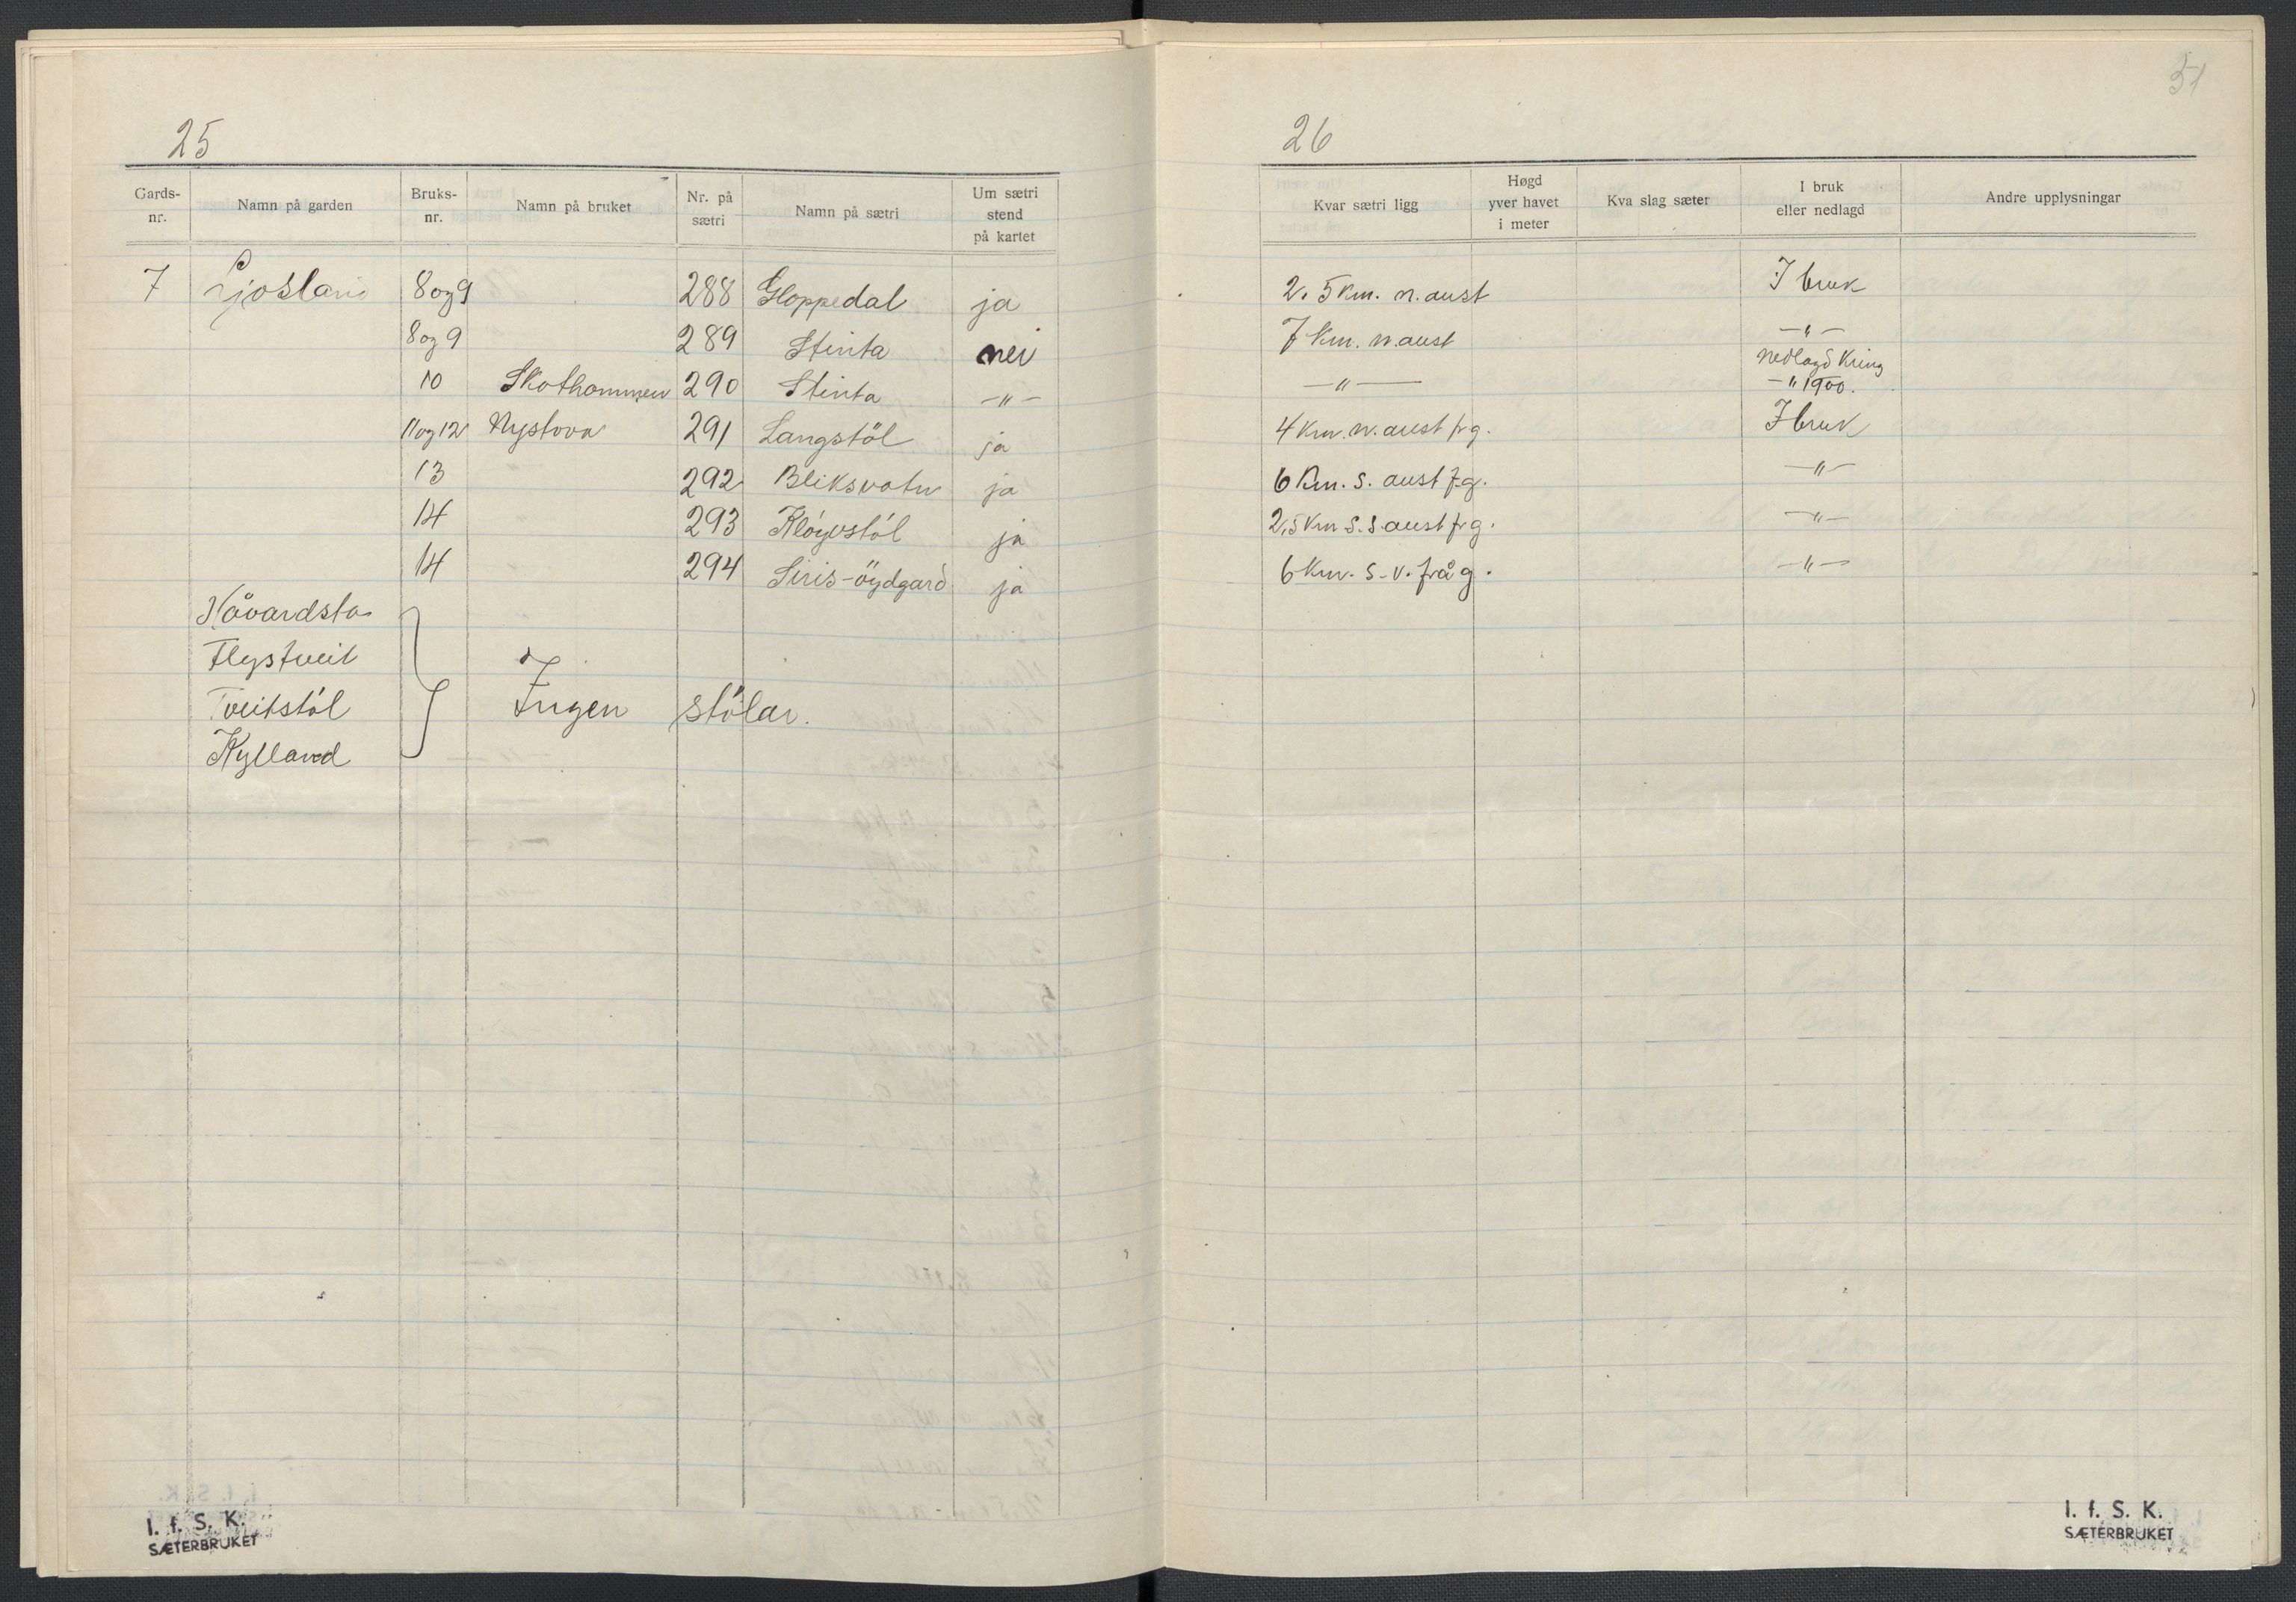 25
Gards-nr. Namn på garden Bruks-nr. Namn på bruket Nr. på sætri Namn på sætri Um sætri stend på kartet
7 Ljosland 8 og 9 288 Gloppedal ja
8 og 9 289 Stinta nei
10 Skothommen 290 Stinta -"-
11 og 12 Nystova 291 Langstöl ja
13 292 Bliksvatn ja
14 293 Klöyvstöl ja
14 294 Siris-öydgard ja
Håvardsta
Flystveit
Tveitstöl
Kylland
Ingen stölar.
I. f. S. K.
SÆTERBRUKET
51
26
Kvar sætri ligg Høgd yver havet i meter Kva slag sæter I bruk eller nedlagd Andre upplysningar
2.5 km. n. aust I bruk
7 km. n. aust -"-
-"- nedlagd kring -"- 1900.
4 km. n. aust fr g. I bruk
6 km. s. aust f.g. -"-
2,5 km s. s aust fr g. -"-
6 km. s.-v. frå g. -"-
I. f. S. K.
SÆTERBRUKET